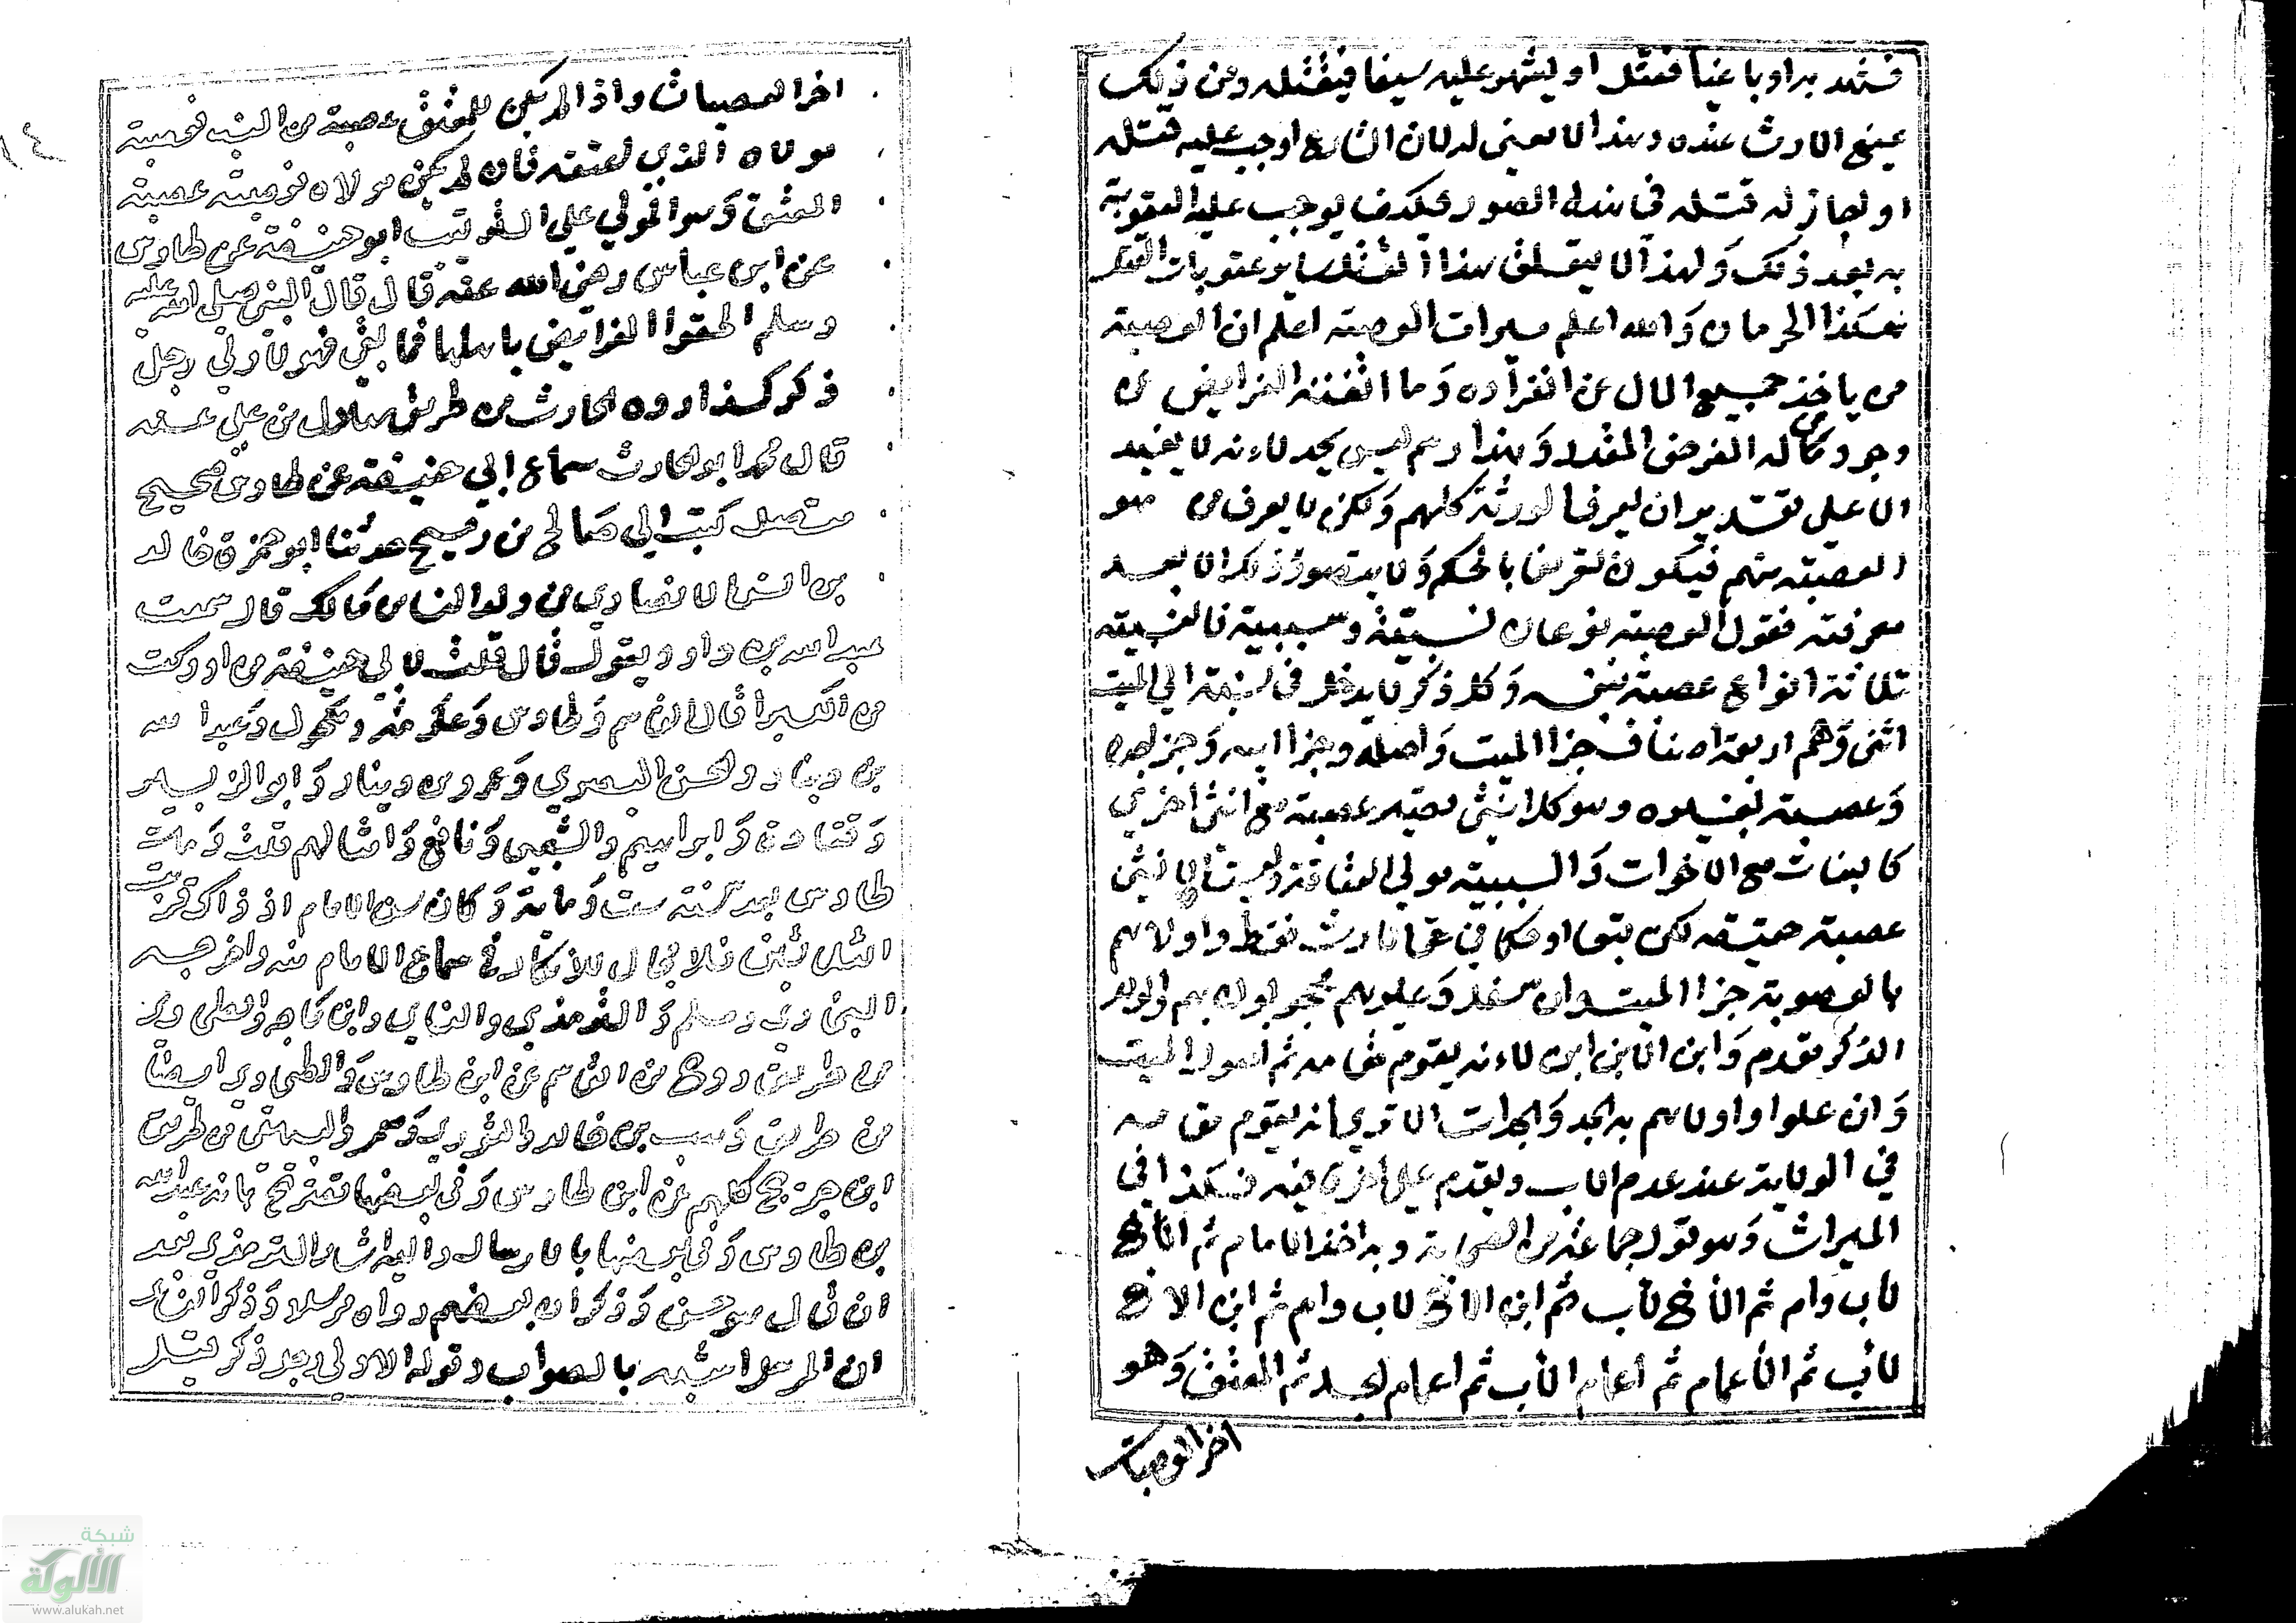 فشهد به او باغيا فقتل او ليشهر عليه سيفا فيقتله ومن ذلك
يمنع الارث عنده وهذا لا معنى له لان الشارع اوجب عليه قتله
او اجاز له قتله في هذه الصور فكيف يوجب عليه العقوبة
به بعد ذلك وَلهذا لا يتعلق بهذا القتل سائر عقوبات القتل
فكذا الحرمان وَالله اعلم ميراث العصبة اعلم ان العصبة
من ياخذ جميع المال عن انفراده وَما ابقته الفرايض عن
وجود من له الفرض المقدر وَهذا رسم ليس بحد لانه لا يفيد
الا على تقدير ان يعرف الورثة كلهم وَلكن لا يعرف من هو
العصبة منهم فيكون تعريفا بالحكم وَلا يتصور ذلك الا بعد
معرفته فنقول العصبة نوعان نسبيّة وسببية فالنسبية
ثلاثة انواع عصبة بنفسه وَكل ذكر لا يدخل في نسبته الى الميت
انثى وَهم اربعة اصناف جزا الميت وَاصله وجزا ابيه وَجز جده
وَعصبة بغيره وهو كل انثى تصير عصبة مع انثى اخرى
كالبنات مع الاخوات وَالسببية مولى العتاقة
عصبة حقيقة لكن فقط واولاهم
بالعصوبة جزا الميت وان سفل وَ
الذكر مقدم وَابن الابن ابن لانه يقوم مقامه ثم اصول الميت
وَان علوا واولاهم به الجد وَ الا ترى انه يقوم مقامه
في الولاية عند عدم الاب ويقدم على الاخ فيه فكذا في
الميراث وَهو قول جماعة من الصحابة وبه اخذ الامام ثم الاخ
لاب وام ثم الأخ لأب ثم ابن الاخ لاب وام ثم ابن الاخ
لأب ثم الأعمام ثم أعمام الأب ثم أعمام الجد ثم المعتق وَهو
اخر العصبات
اخر العصبات واذا لم يكن للمعتق عصبة من النسب فعصبته
مولاه الذي اعتقه فان لم يكن مولاه فعصبته عصبة
المعتق وَهو المولى على الترتيب ابو حنيفة عن طاوس
عن ابن عباس رضي الله عنه قال قال النبي صلى الله عليه
وسلم الحقوا الفرايض باهلها فما بقي فهو لأولى رجل
ذكر كذا رواه الحارث من طريق هلال من علي عنه
قال محمد ابو الحارث سماع ابي حنيفة عن طاوس صحيح
متصل كتب الي صالح بن رميح حدثنا ابو حمزة خالد
بن انس الانصاري من ولد انس مالك قال سمعت
عبد الله بن داود يقول قال قلت لابي حنيفة من ادركت
من الكبرا قال القاسم وَطاوس وَعكرمة ومكحول وَعبد الله
بن دينار والحسن البصري وَعمرو بن دينار وَابو الزبير
وَقتادة وَابراهيم والشعبي وَنافع وَامثالهم قلت وَمات
طاوس بعد سنة ست وَماية وَكان سن الامام اذ ذاك قريب
الثلاثين فلا مجال للانكار في سماع الامام منه واخرجه
البخاري ومسلم وَالترمذي والنساي وابن ماجه والطحاوي
من طريق روح بن القاسم عن ابن طاوس وَالطحاوي ايضاً
من طريق وَهيب بن خالد والثوري وَمعمر والبيهقي من طريق
ابن جريج كلهم عن ابن طاوس وَفي بعضها تصريح بانه عبد الله
بن طاوس وَفي بعضها بالارسال والترمذي بعد
ان قال هو حسن وَذكر ان بعضهم رواه مرسلا وَذكر النساي
ان المرسل اشبه بالصواب وقوله الاولى رجل ذكر قيل
شبكة
الألوكة
www.alukah.net